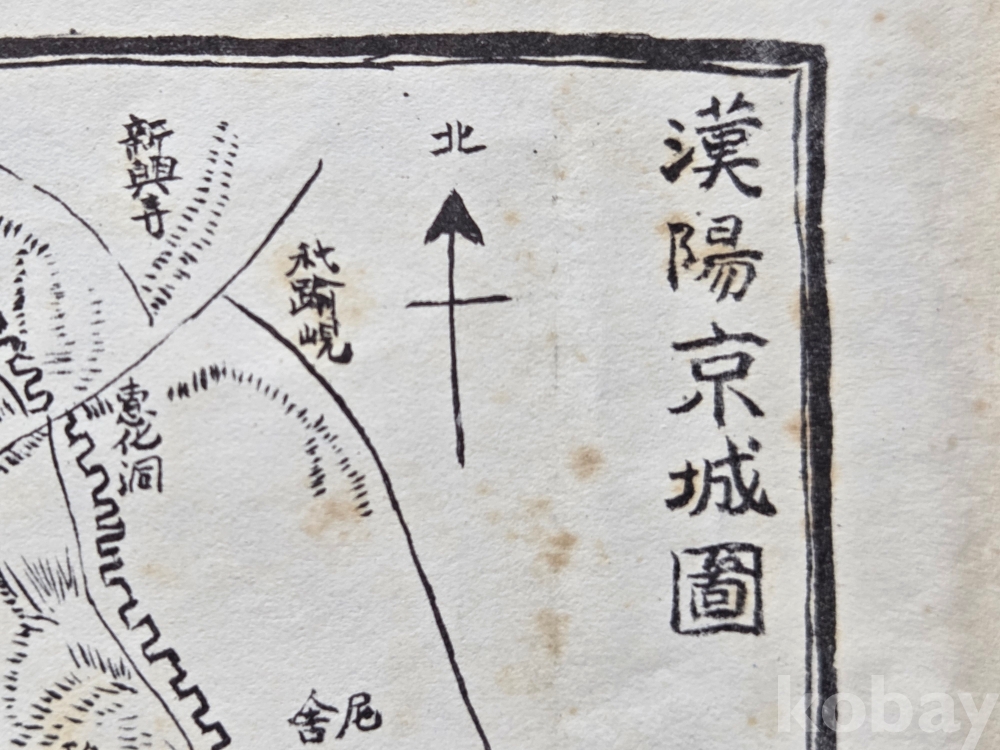 漢陽京城圖
北
踰峴
新興寺
惠化洞
尼舍
kobay